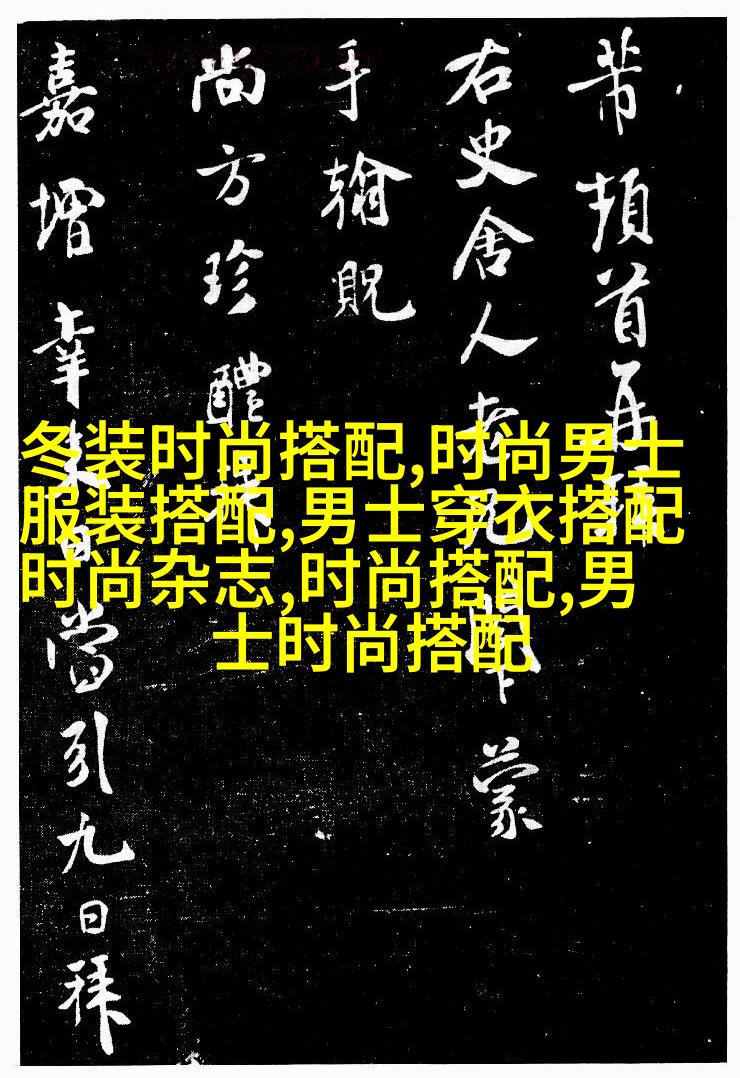 芾頓首再拜
右史舍人老兄下蒙
手翰貺
尚方珍醴
嘉增幸來日當引九日拜
冬装时尚搭配,时尚男士
服装搭配,男士穿衣搭配
时尚杂志,时尚搭配,男
士时尚搭配